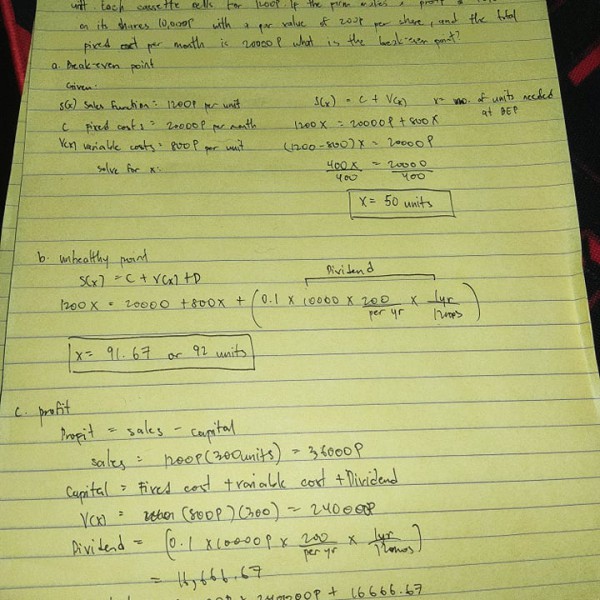 unit. Each cassette sells for 1200P. If the firm makes a profit
on its shares 10,000P with a par value of 200P per share, and the total
fixed cost per month is 20000P what is the break-even point?
a. Break-even point
Given:
S(x) Sales Function = 1200P per unit
C fixed costs = 20000P per month
V(x) variable costs = 800P per unit
Solve for x:
S(x) = C + V(x) x= no. of units needed at BEP
1200x = 20000P + 800x
(1200-800)x = 20000P
400x/400 = 20000/400
x = 50 units
b. unhealthy point
S(x) = C + V(x) + D
Dividend
1200x = 20000 + 800x + (0.1 x 10000 x 200/per yr x 1yr/12mos)
x = 91.67 or 92 units
c. profit
Profit = sales - capital
sales = 1200P(300units) = 36000P
Capital = Fixed cost + variable cost + Dividend
V(x) = (800P)(300) = 240000P
Dividend = (0.1 x 10000P x 200/per yr x 1yr/12mos)
= 16,666.67
+ 16666.67